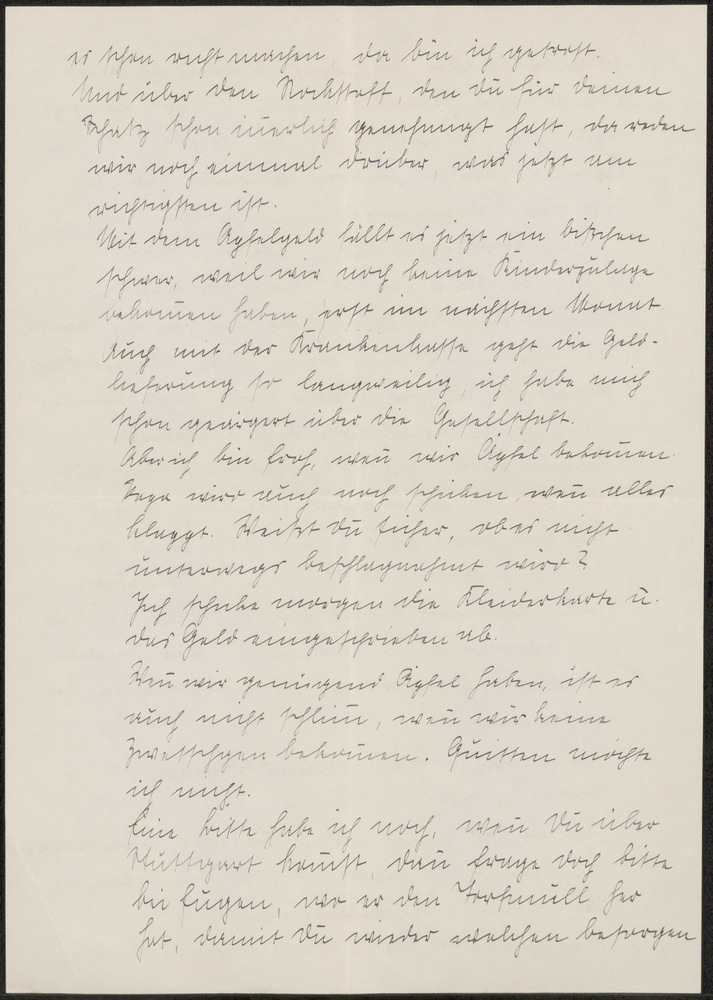 es schon recht machen, da bin ich getrost.
Und über den Rockstoff, den du für deinen
Schatz schon innerlich genehmigt hast, da reden
wir noch einmal drüber was jetzt am
richtigsten ist.
Mit dem Apfelgeld fällt es jetzt ein bißchen
schwer, weil wir noch keine Kinderzulage
bekom̄en haben, erst im nächsten Monat.
Auch mit der Krankenkasse geht die Geld-
lieferung so langweilig, ich habe mich
schon geärgert über die Gesellschaft.
Aber ich bin froh, wen̄ wir Äpfel bekom̄en.
Papa wird auch noch schicken, wen̄ alles
klappt. Weißt du sicher, ob es nicht
unterwegs beschlagnahmt wird?
Ich schicke morgen die Kleiderkarte u.
das Geld eingeschrieben ab.
Wen̄ wir genügend Äpfel haben, ist es
auch nicht schlim̄, wen̄ wir keine
Zwetschgen bekom̄en. Quitten möchte
ich nicht.
Eine Bitte habe ich noch, wen̄ Du über
Stuttgart kom̄st, dan̄ frage doch bitte
bei Eugen, wo er den Torfmull her
hat, damit Du wieder welchen besorgen